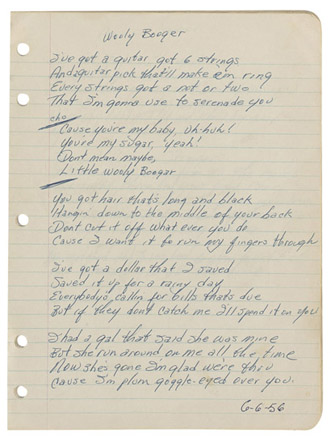 Wooly Booger
I've got a guitar got 6 strings
And a guitar pick that'll make em ring
Every strings got a not or two
That I'm gonna use to serenade you
cho
Cause you're my baby, Uh-huh!
You'rd my sugar, yeah!
Dont mean maybe,
Little Wooly Boogar
You got hair thats long and black
Hangin down to the middle of your back
Dont cut it off what ever you do
Cause I want it to run my fingers through
I've got a dollar that I saved
Saved it up for a rainy day
Everybodys callin for bills thats due
But if they dont catch me I'll spend it on you
I had a gal that said she was mine
But she run around on me all the time
Now she's gone I'm glad were thru
Cause I'm plum goggle-eyed over you.
6-6-56